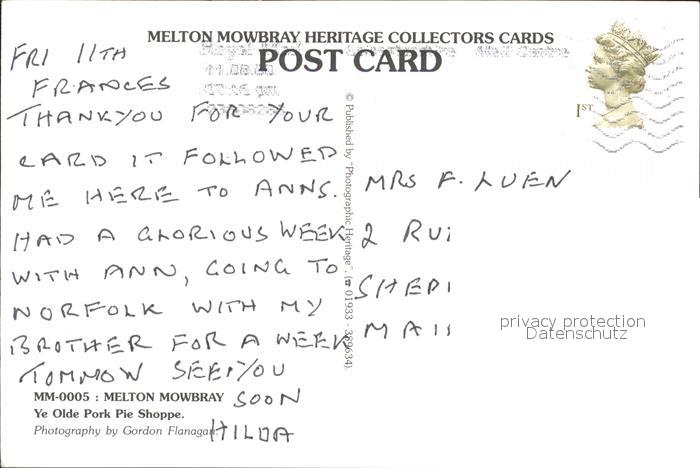 MELTON MOWBRAY HERITAGE COLLECTORS CARDS
POST CARD
1ST
FRI 11TH
FRANCES
THANKYOU FOR YOUR
CARD IT FOLLOWED
ME HERE TO ANNS.
HAD A GLORIOUS WEEK
WITH ANN, GOING TO
NORFOLK WITH MY
BROTHER FOR A WEEK
TOMMOW SEE YOU
SOON
HILDA
© Published by "Photographic Heritage". (☎ 01933 - 389634).
MRS F. LUEN
2 RUI
SHEPI
MAII
privacy protection
Datenschutz
MM-0005 : MELTON MOWBRAY
Ye Olde Pork Pie Shoppe.
Photography by Gordon Flanagan.